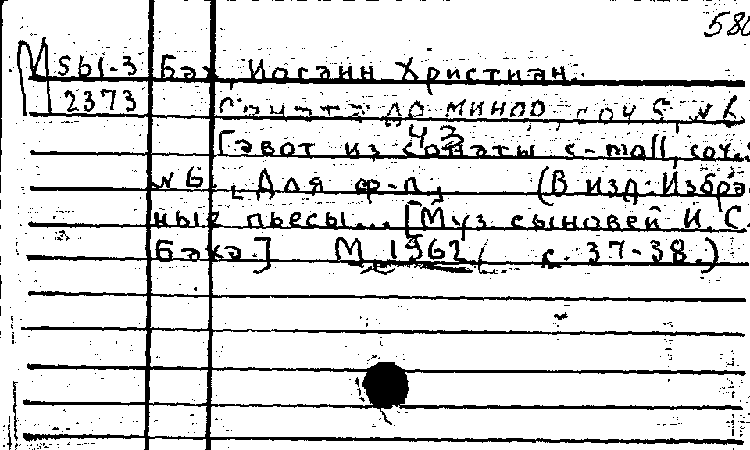 580
М 561-3 Бах, Иоганн Христиан.
2373 Соната до минор, соч 5, № 6
Гавот из сонаты c-moll, соч.
№ 6. [Для ф-п.] (В изд: Избра
ные пьесы... [Муз сыновей И. С.
Баха.] М 1962, с. 37-38.)